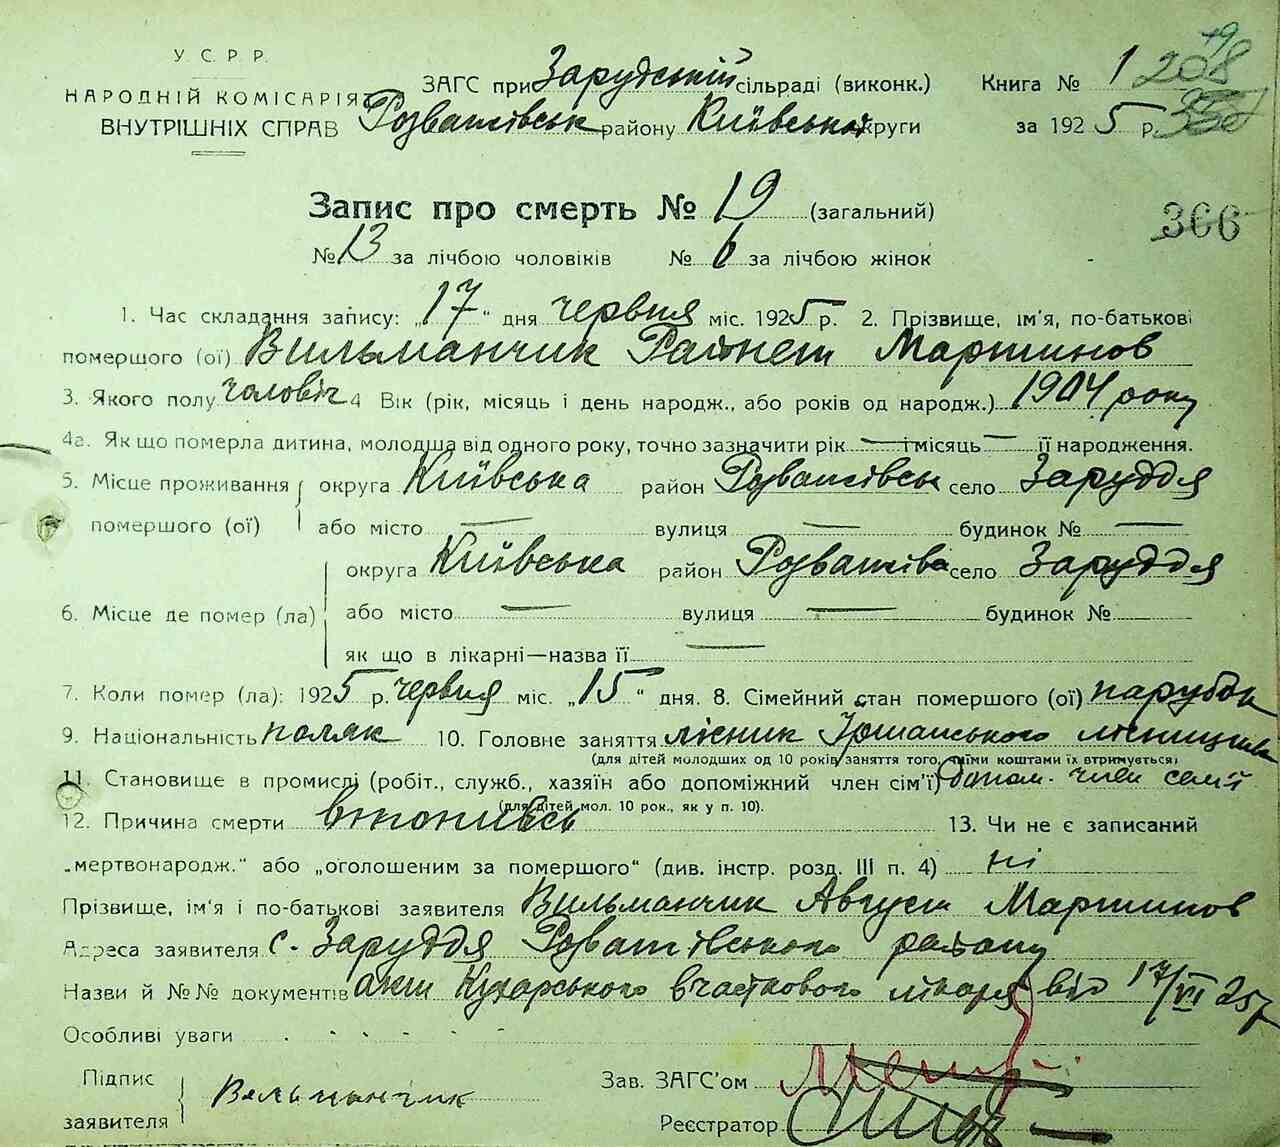 У. С. Р. Р.
НАРОДНІЙ КОМІСАРІЯТ
ВНУТРІШНІХ СПРАВ
ЗАГС при Зарудській сільраді (виконк.)
Розважівськ району Київської округи
Книга № 1
за 1925 р.
208
366
Запис про смерть № 19 (загальний)
№ 13 за лічбою чоловіків № 6 за лічбою жінок
1. Час складання запису: „17“ дня червня міс. 1925 р. 2. Прізвище, ім'я, по-батькові
помершого (ої) Вильманчик Мартинов
3. Якого полу чоловіч 4 Вік (рік, місяць і день народж., або років од народж.) 1904 року
4а. Як що померла дитина, молодша від одного року, точно зазначити рік — і місяць — її народження.
5. Місце проживання округа Київська район Розважівськ село Заруддя
помершого (ої) або місто — вулиця — будинок № —
округа Київська район Розважівськ село Заруддя
6. Місце де помер (ла) або місто — вулиця — будинок №
як що в лікарні—назва її —
7. Коли помер (ла): 1925 р. червня міс. „15“ дня. 8. Сімейний стан помершого (ої) парубок
9. Національність поляк 10. Головне заняття лісник Іршанського лісництва
(для дітей молодших од 10 років заняття того, чиїми коштами їх втримується)
11. Становище в промислі (робіт., служб., хазяїн або допоміжний член сім'ї) допом. член семї
(для дітей мол. 10 рок., як у п. 10).
12. Причина смерти втопивсь 13. Чи не є записаний
„мертвонародж.“ або „оголошеним за помершого“ (див. інстр. розд. III п. 4) ні
Прізвище, ім'я і по-батькові заявителя Вильманчик Август Мартинов
Адреса заявителя с. Заруддя Розважівського району
Назви й №№ документів акт Кухарського вчасткового лікаря від 17/VI 25 р
Особливі уваги
Підпис
заявителя Вельманчик
Зав. ЗАГС'ом
Реєстратор